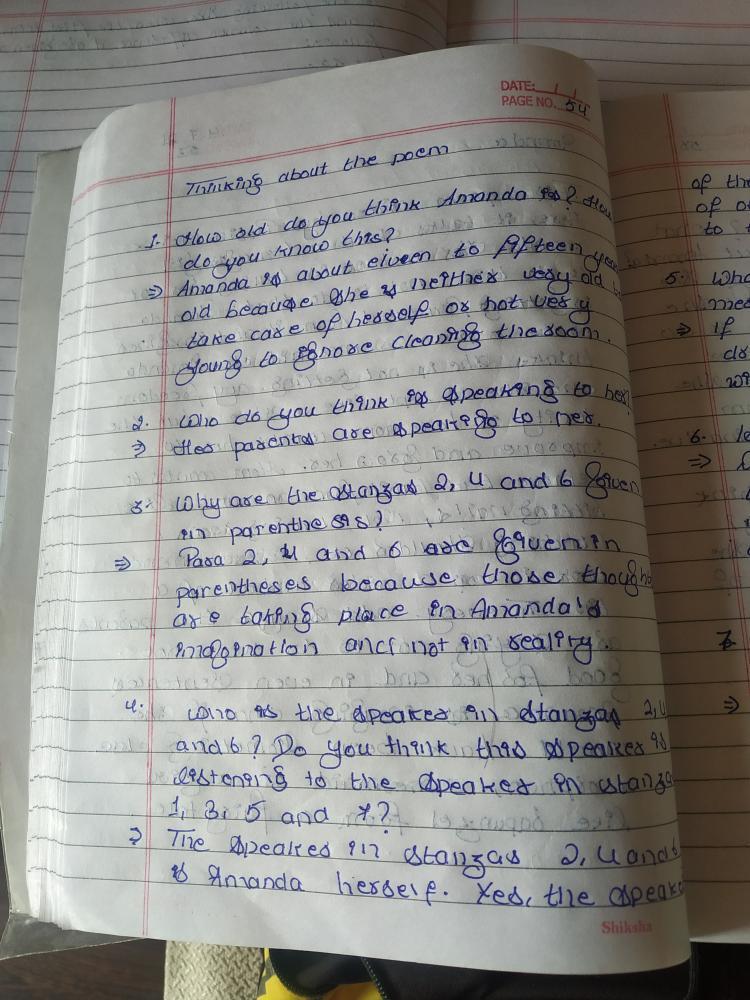 DATE: / /
PAGE NO. 54
Thinking about the poem
1. How old do you think Amanda is? How
do you know this?
⇒ Amanda is about eiveen to fifteen year
old because she is neither very old
take care of herself or not very
young to ignore cleaning the room.
2. Who do you think is speaking to her?
⇒ Her parents are speaking to her.
3. Why are the stanzas 2, 4 and 6 given
in parenthesis?
⇒ Para 2, 4 and 6 are given in
parentheses because those though
are taking place in Amanda's
imagination and not in reality.
4. Who is the speaker in stanzas 2, 4
and 6? Do you think this speaker is
listening to the speaker in stanza
1, 3, 5 and 7?
⇒ The speaker in stanzas 2, 4 and 6
is Amanda herself. Yes, the speake
Shiksha
of the
of o
to
5. Who
med
⇒ If
do
wi
6.
⇒
7.
⇒